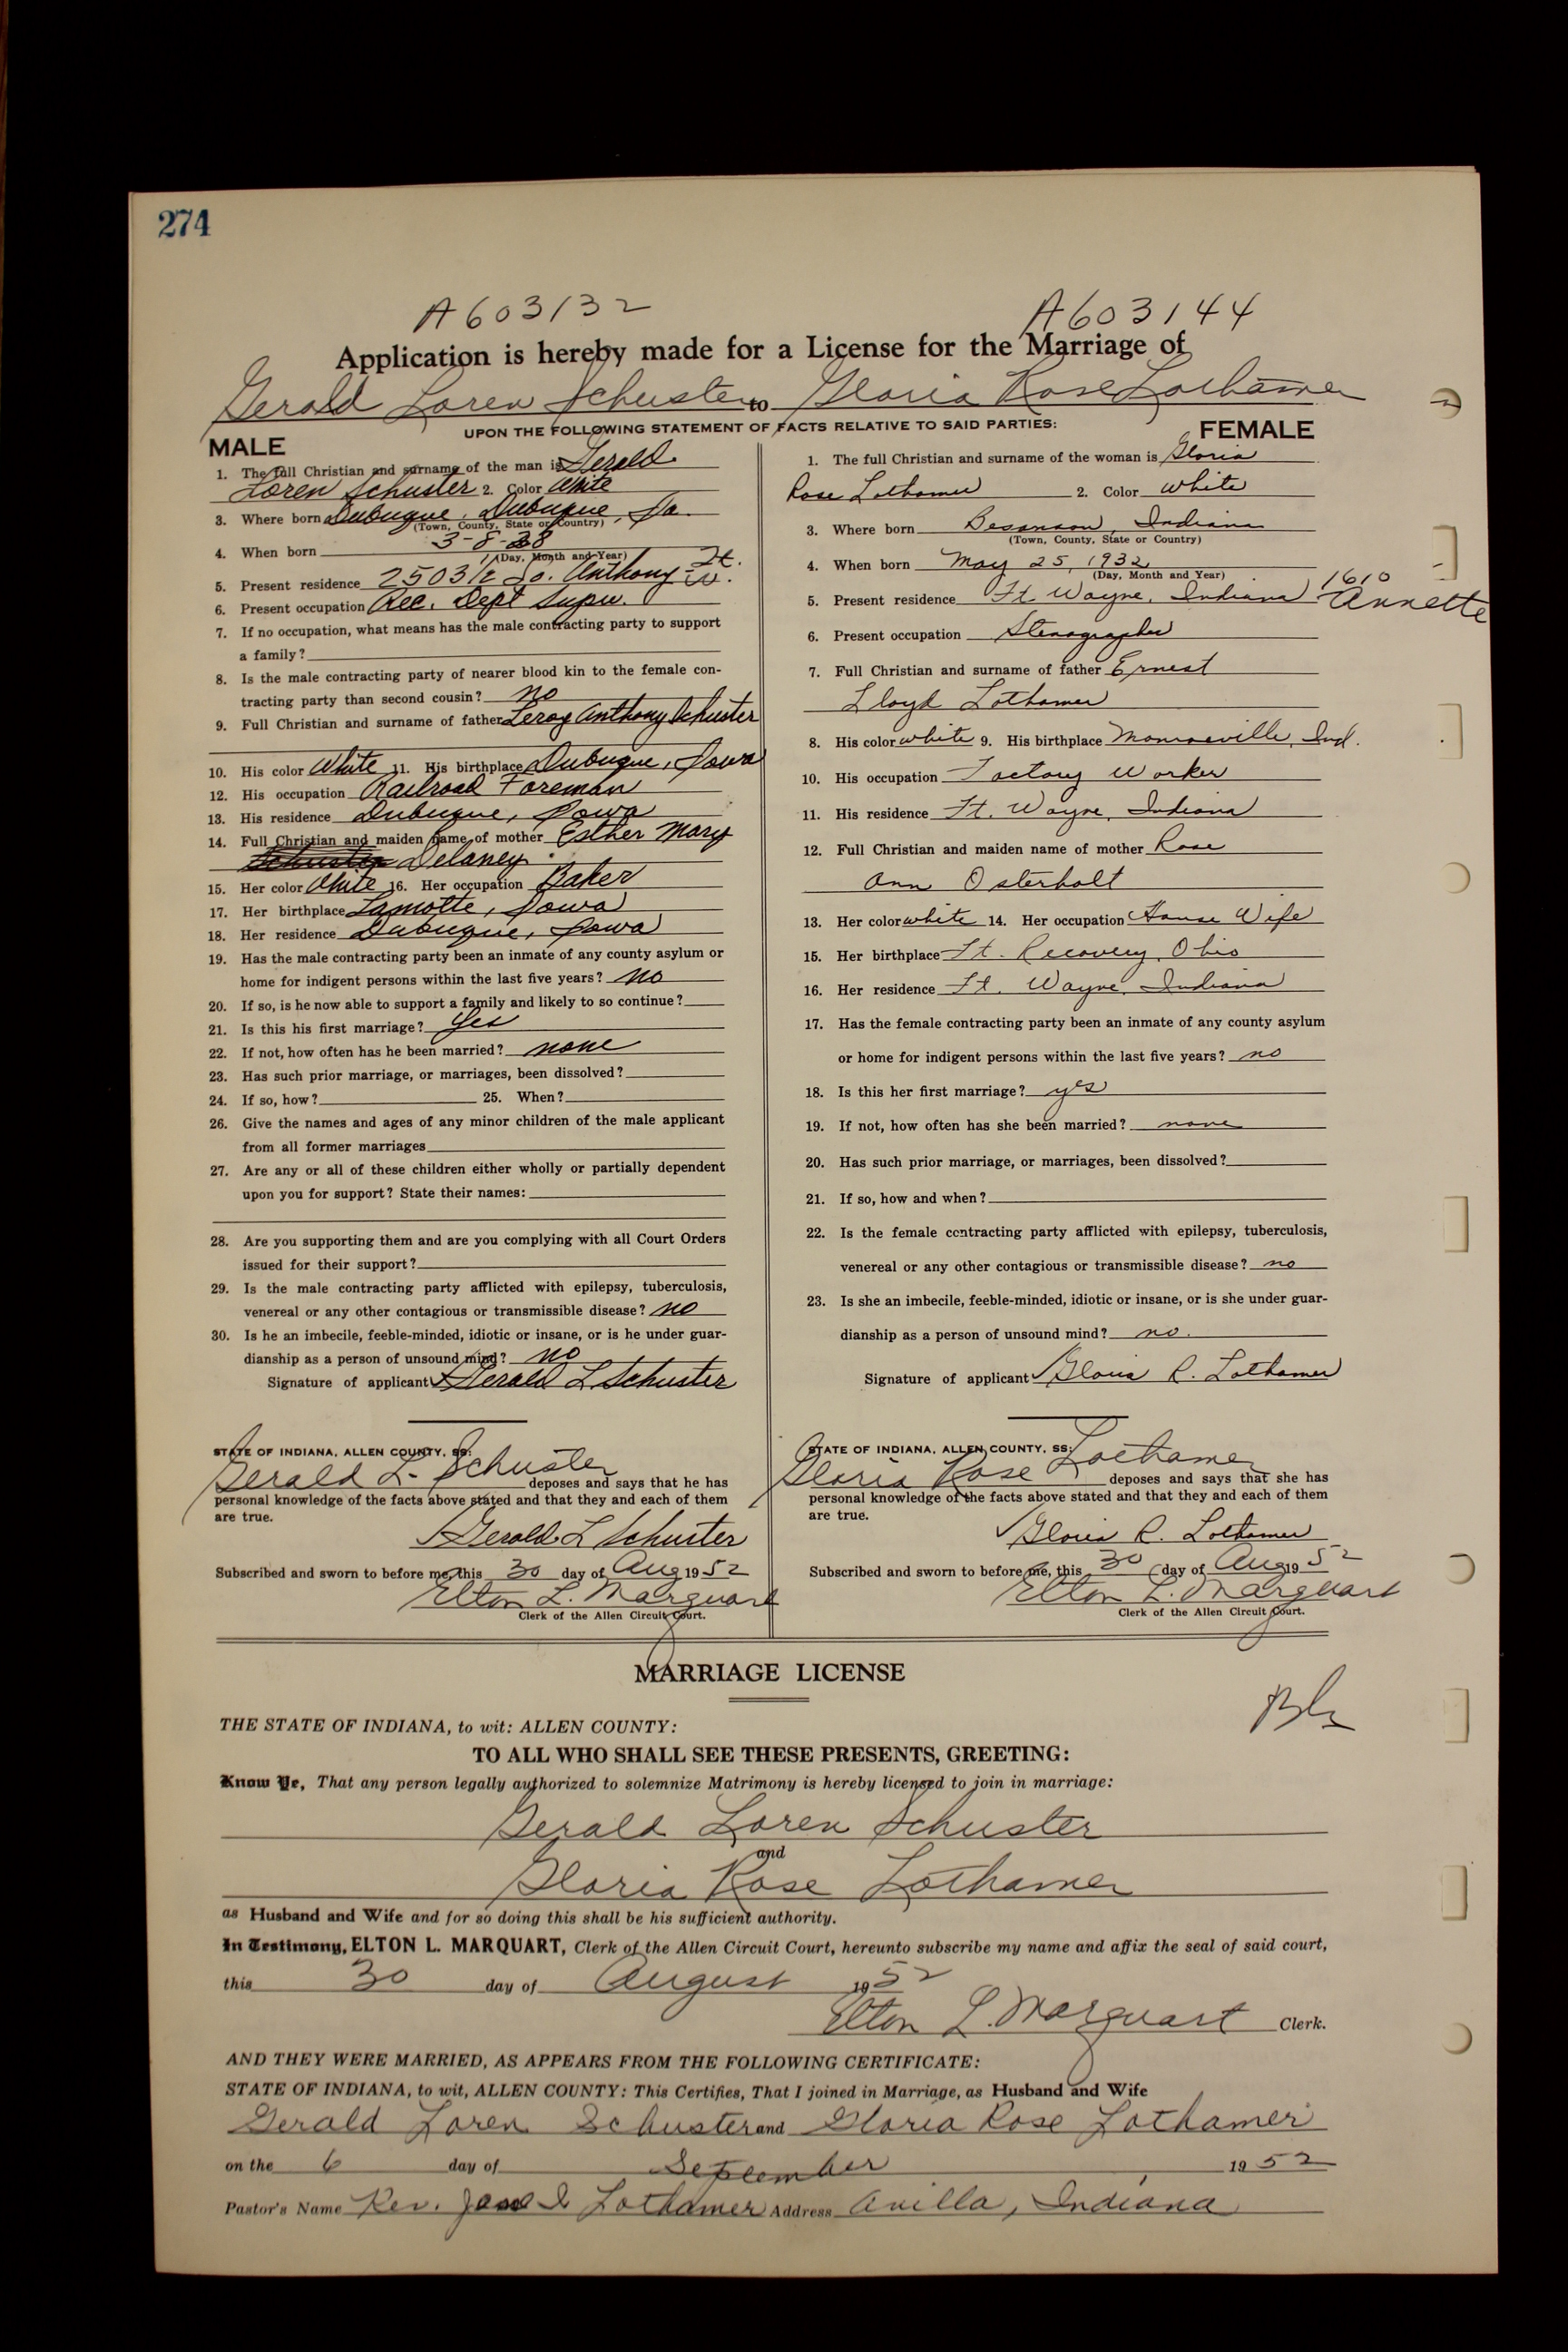 274
A603132 A603144
Application is hereby made for a License for the Marriage of
Gerald Loren Schuster to Gloria Rose Lothamer
UPON THE FOLLOWING STATEMENT OF FACTS RELATIVE TO SAID PARTIES:
MALE
1. The full Christian and surname of the man is Gerald
Loren Schuster 2. Color White
3. Where born Dubuque, Dubuque, Ia.
(Town, County, State or Country)
4. When born 3-8-28
(Day, Month and Year)
5. Present residence 2503 1/2 So. Anthony Ft. W.
6. Present occupation Rec. Dept Supv.
7. If no occupation, what means has the male contracting party to support
a family?
8. Is the male contracting party of nearer blood kin to the female con-
tracting party than second cousin? no
9. Full Christian and surname of father Leroy Anthony Schuster
10. His color White 11. His birthplace Dubuque, Iowa
12. His occupation Railroad Foreman
13. His residence Dubuque, Iowa
14. Full Christian and maiden name of mother Esther Mary
Schuster Delaney
15. Her color White 16. Her occupation Baker
17. Her birthplace Lamotte, Iowa
18. Her residence Dubuque, Iowa
19. Has the male contracting party been an inmate of any county asylum or
home for indigent persons within the last five years? no
20. If so, is he now able to support a family and likely to so continue?
21. Is this his first marriage? Yes
22. If not, how often has he been married? none
23. Has such prior marriage, or marriages, been dissolved?
24. If so, how? 25. When?
26. Give the names and ages of any minor children of the male applicant
from all former marriages
27. Are any or all of these children either wholly or partially dependent
upon you for support? State their names:
28. Are you supporting them and are you complying with all Court Orders
issued for their support?
29. Is the male contracting party afflicted with epilepsy, tuberculosis,
venereal or any other contagious or transmissible disease? no
30. Is he an imbecile, feeble-minded, idiotic or insane, or is he under guar-
dianship as a person of unsound mind? no
Signature of applicant Gerald L Schuster
STATE OF INDIANA, ALLEN COUNTY, SS:
Gerald L. Schuster deposes and says that he has
personal knowledge of the facts above stated and that they and each of them
are true.
Gerald L Schuster
Subscribed and sworn to before me, this 30 day of Aug 1952
Elton L. Marquart
Clerk of the Allen Circuit Court.
FEMALE
1. The full Christian and surname of the woman is Gloria
Rose Lothamer 2. Color white
3. Where born Besancon, Indiana
(Town, County, State or Country)
4. When born May 25, 1932
(Day, Month and Year)
5. Present residence Ft. Wayne, Indiana 1610 Annette
6. Present occupation Stenographer
7. Full Christian and surname of father Ernest
Lloyd Lothamer
8. His color white 9. His birthplace Monroeville, Ind.
10. His occupation Factory Worker
11. His residence Ft. Wayne, Indiana
12. Full Christian and maiden name of mother Rose
Ann Osterholt
13. Her color white 14. Her occupation House Wife
15. Her birthplace Ft. Recovery, Ohio
16. Her residence Ft. Wayne, Indiana
17. Has the female contracting party been an inmate of any county asylum
or home for indigent persons within the last five years? no
18. Is this her first marriage? yes
19. If not, how often has she been married? none
20. Has such prior marriage, or marriages, been dissolved?
21. If so, how and when?
22. Is the female contracting party afflicted with epilepsy, tuberculosis,
venereal or any other contagious or transmissible disease? no
23. Is she an imbecile, feeble-minded, idiotic or insane, or is she under guar-
dianship as a person of unsound mind? no.
Signature of applicant Gloria R. Lothamer
STATE OF INDIANA, ALLEN COUNTY, SS:
Gloria Rose Lothamer deposes and says that she has
personal knowledge of the facts above stated and that they and each of them
are true.
Gloria R. Lothamer
Subscribed and sworn to before me, this 30 day of Aug 1952
Elton L. Marquart
Clerk of the Allen Circuit Court.
MARRIAGE LICENSE
THE STATE OF INDIANA, to wit: ALLEN COUNTY:
TO ALL WHO SHALL SEE THESE PRESENTS, GREETING:
Know Ye, That any person legally authorized to solemnize Matrimony is hereby licensed to join in marriage:
Gerald Loren Schuster
and
Gloria Rose Lothamer
as Husband and Wife and for so doing this shall be his sufficient authority.
In Testimony, ELTON L. MARQUART, Clerk of the Allen Circuit Court, hereunto subscribe my name and affix the seal of said court,
this 30 day of August 1952
Elton L. Marquart Clerk.
AND THEY WERE MARRIED, AS APPEARS FROM THE FOLLOWING CERTIFICATE:
STATE OF INDIANA, to wit, ALLEN COUNTY: This Certifies, That I joined in Marriage, as Husband and Wife
Gerald Loren Schuster and Gloria Rose Lothamer
on the 6 day of September 1952
Pastor's Name Rev. Lothamer Address Avilla, Indiana